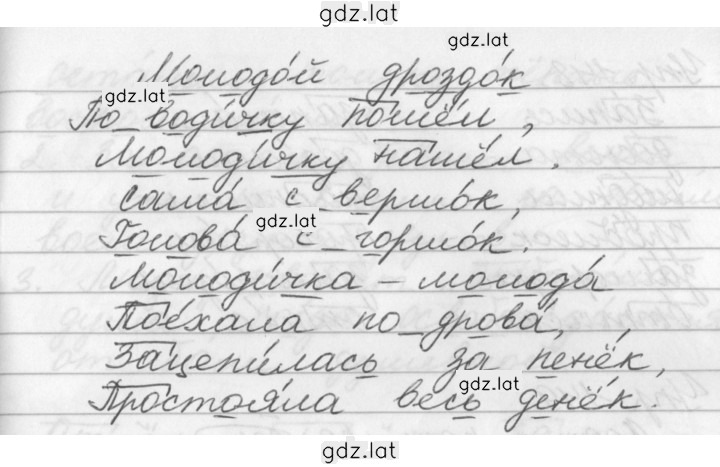 gdz.lat
gdz.lat
Молодо́й дроздо́к
gdz.lat
По води́чку пошёл,
Молоди́чку нашёл.
Сама́ с вершо́к,
gdz.lat
Голова́ с горшо́к.
Молоди́чка – молода́
Пое́хала по дрова́,
Зацепи́лась за пенёк,
gdz.lat
Простоя́ла весь денёк.
gdz.lat